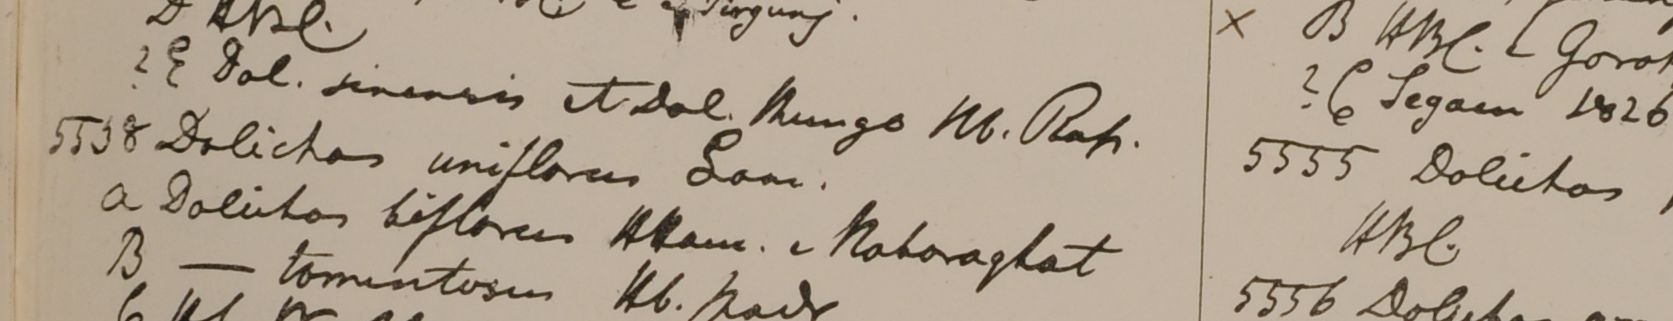 D HBC.
? E Dol. sinensis et Dol. Mungo Hb. Roxb.
5538 Dolichos uniflorus Lam.
a Dolichos biflorus HHam. e Nahoraghat
B — tomentosus Hb. Madr
B HBC. e Gorak
? C Segaen 1826
5555 Dolichos
HBC.
5556 Dolichos